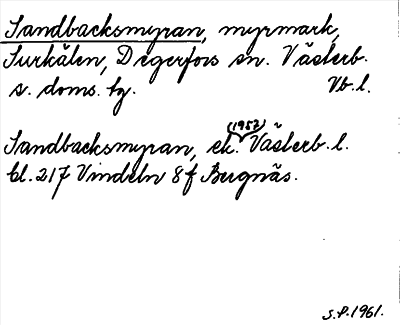 Sandbacksmyran, myrmark,
Surkålen, Degerfors sn. Västerb.
s. doms. tg. Vb. l.
(1952)
Sandbacksmyran, ek. Västerb. l.
bl. 217 Vindeln 8f Bergnäs.
S.P. 1961.